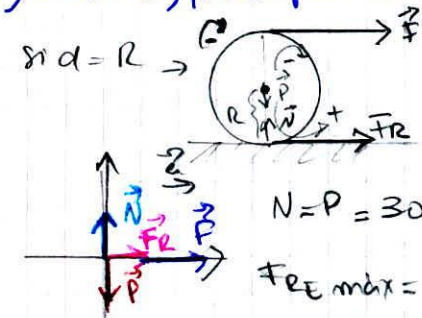 si d = R →
F
P
R
N
+
F_R
a
N
F_R
F
P
N = P = 30
F_RE máx =